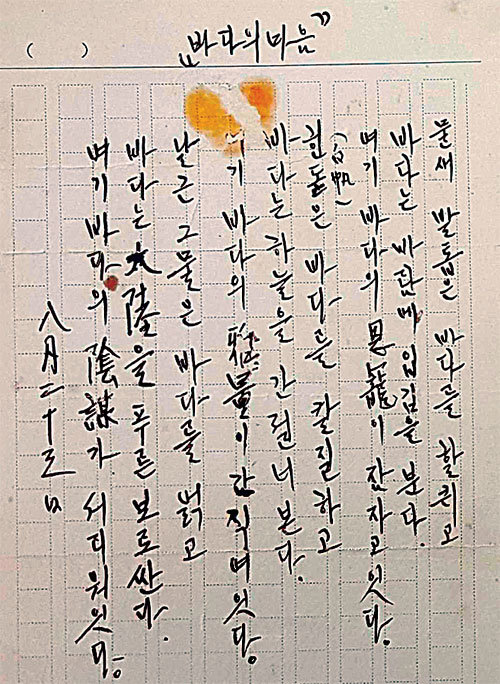 „바다의 마음”
(   )
물새 발톱은 바다를 할퀴고
바다는 바람에 입김을 분다.
여기 바다의 恩寵이 잠자고잇다.
흰돛은 (白帆) 바다를 칼질하고
바다는 하늘을 간질너본다.
기 바다의 雅量이 간직여잇다.
날근 그물은 바다를 얽고
바다는 大陸을 푸른 보로싼다.
여기 바다의 陰謀가 서리워잇다.
八月二十三日